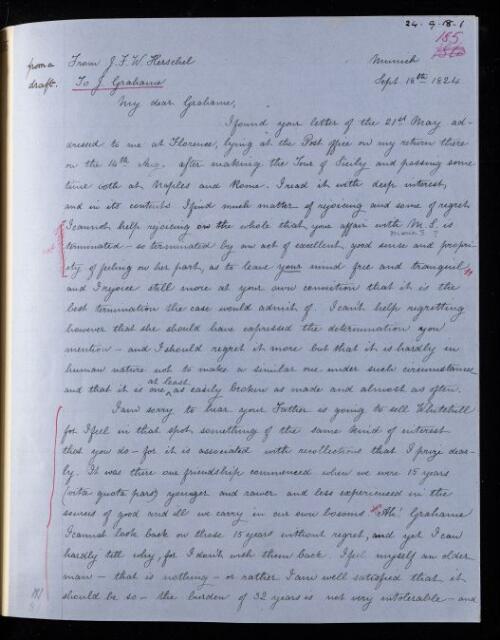 24-9-18-1
185
from a From J. F. W. Herschel Munich
draft. To J. Grahame Sept. 18th 1824
My dear Grahame,
I found your letter of the 21st May ad-
dressed to me at Florence, lying at the Post Office on my return there
on the 14th Aug. after making the Tour of Sicily and passing some
time both at Naples and Rome. I read it with deep interest,
and in its contents I find much matter of rejoicing and some of regret.
I cannot help rejoicing on the whole that your affair with M. S. is
terminated – so terminated by an act of excellent good sense and propri-
ety of feeling on her part, as to leave your mind free and tranquil,
and I rejoice still more at your own conviction that it is the
best termination the case would admit of. I can't help regretting
however that she should have expressed the determination you
mention – and I should regret it more but that it is hardly in
human nature not to make a similar one under such circumstances
and that it is one at least as easily broken as made and almost as often.
I am sorry to hear your Father is going to sell Whitehill
for I feel in that spot something of the same kind of interest
that you do – for it is associated with recollections that I prize dear-
ly. It was there our friendship commenced when we were 15 years
(vitæ quota pars) younger and rawer and less experienced in the
sources of good and ill we carry in our own bosoms. Ah! Grahame
I cannot look back on those 15 years without regret, and yet I can
hardly tell why, for I don't wish them back. I feel myself an older
man – that is nothing – or rather I am well satisfied that it
should be so – the burden of 32 years is not very intolerable – and